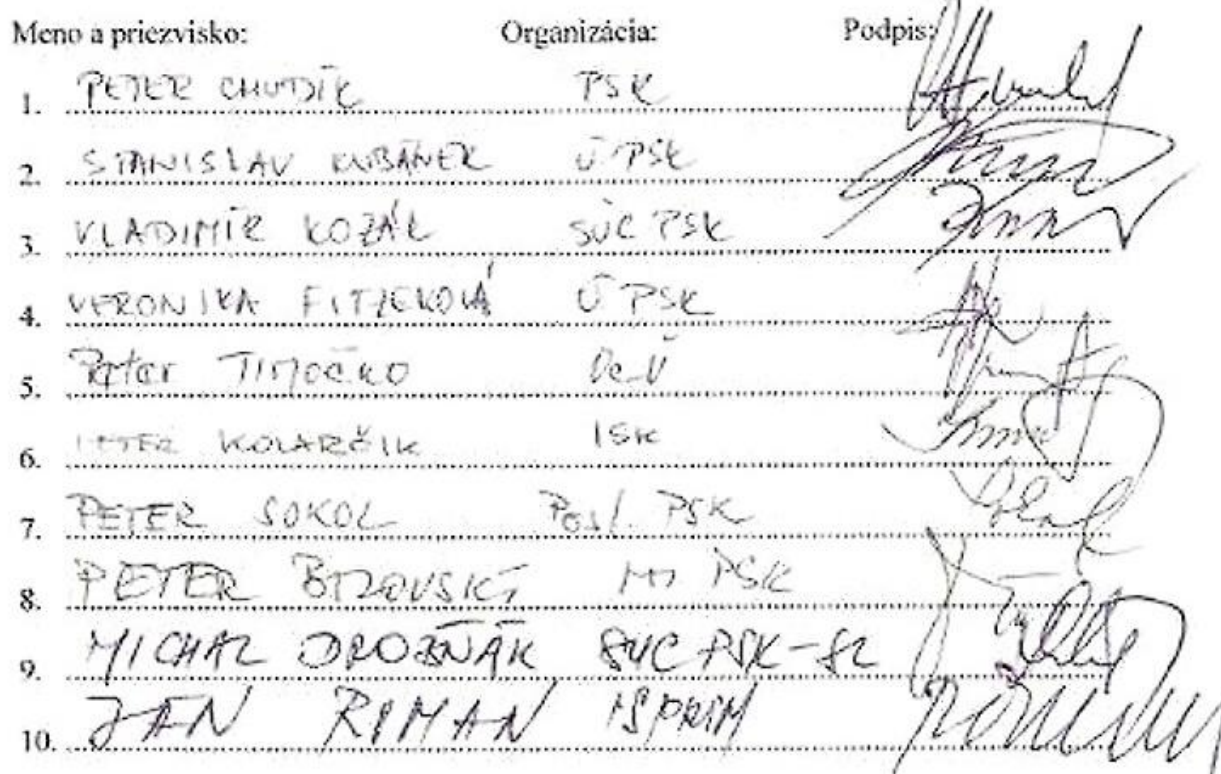 Meno a priezvisko: Organizácia: Podpis:
1. PETER CHUDÍK PSK
2. STANISLAV KUBÁNEK Ú PSK
3. VLADIMÍR KOZÁK SÚC PSK
4. VERONIKA FITZEKOVÁ Ú PSK
5. Peter TIMOČKO
6. PETER KOLARČIK
7. PETER SOKOL Posl. PSK
8. PETER BIZOVSKÝ PSK
9. MICHAL DROZŇÁK SUC PSK-SL
10. JÁN RIMAN ISPRIM